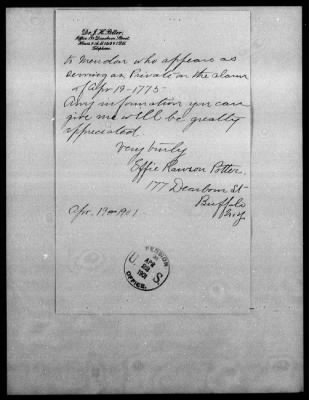 Dr. J. H. Potter,
Office 84 Dearborn Street,
Telephone
to Mendon who appears as
serving as Private on the alarm
of Apr 19-1775-
Any information you can
give me will be greatly
appreciated.
Very truly
Effie Rawson Potter.
177 Dearborn St
Buffalo
N.Y.
Apr. 19 1901
U. S. PENSION OFFICE.
APR
1901